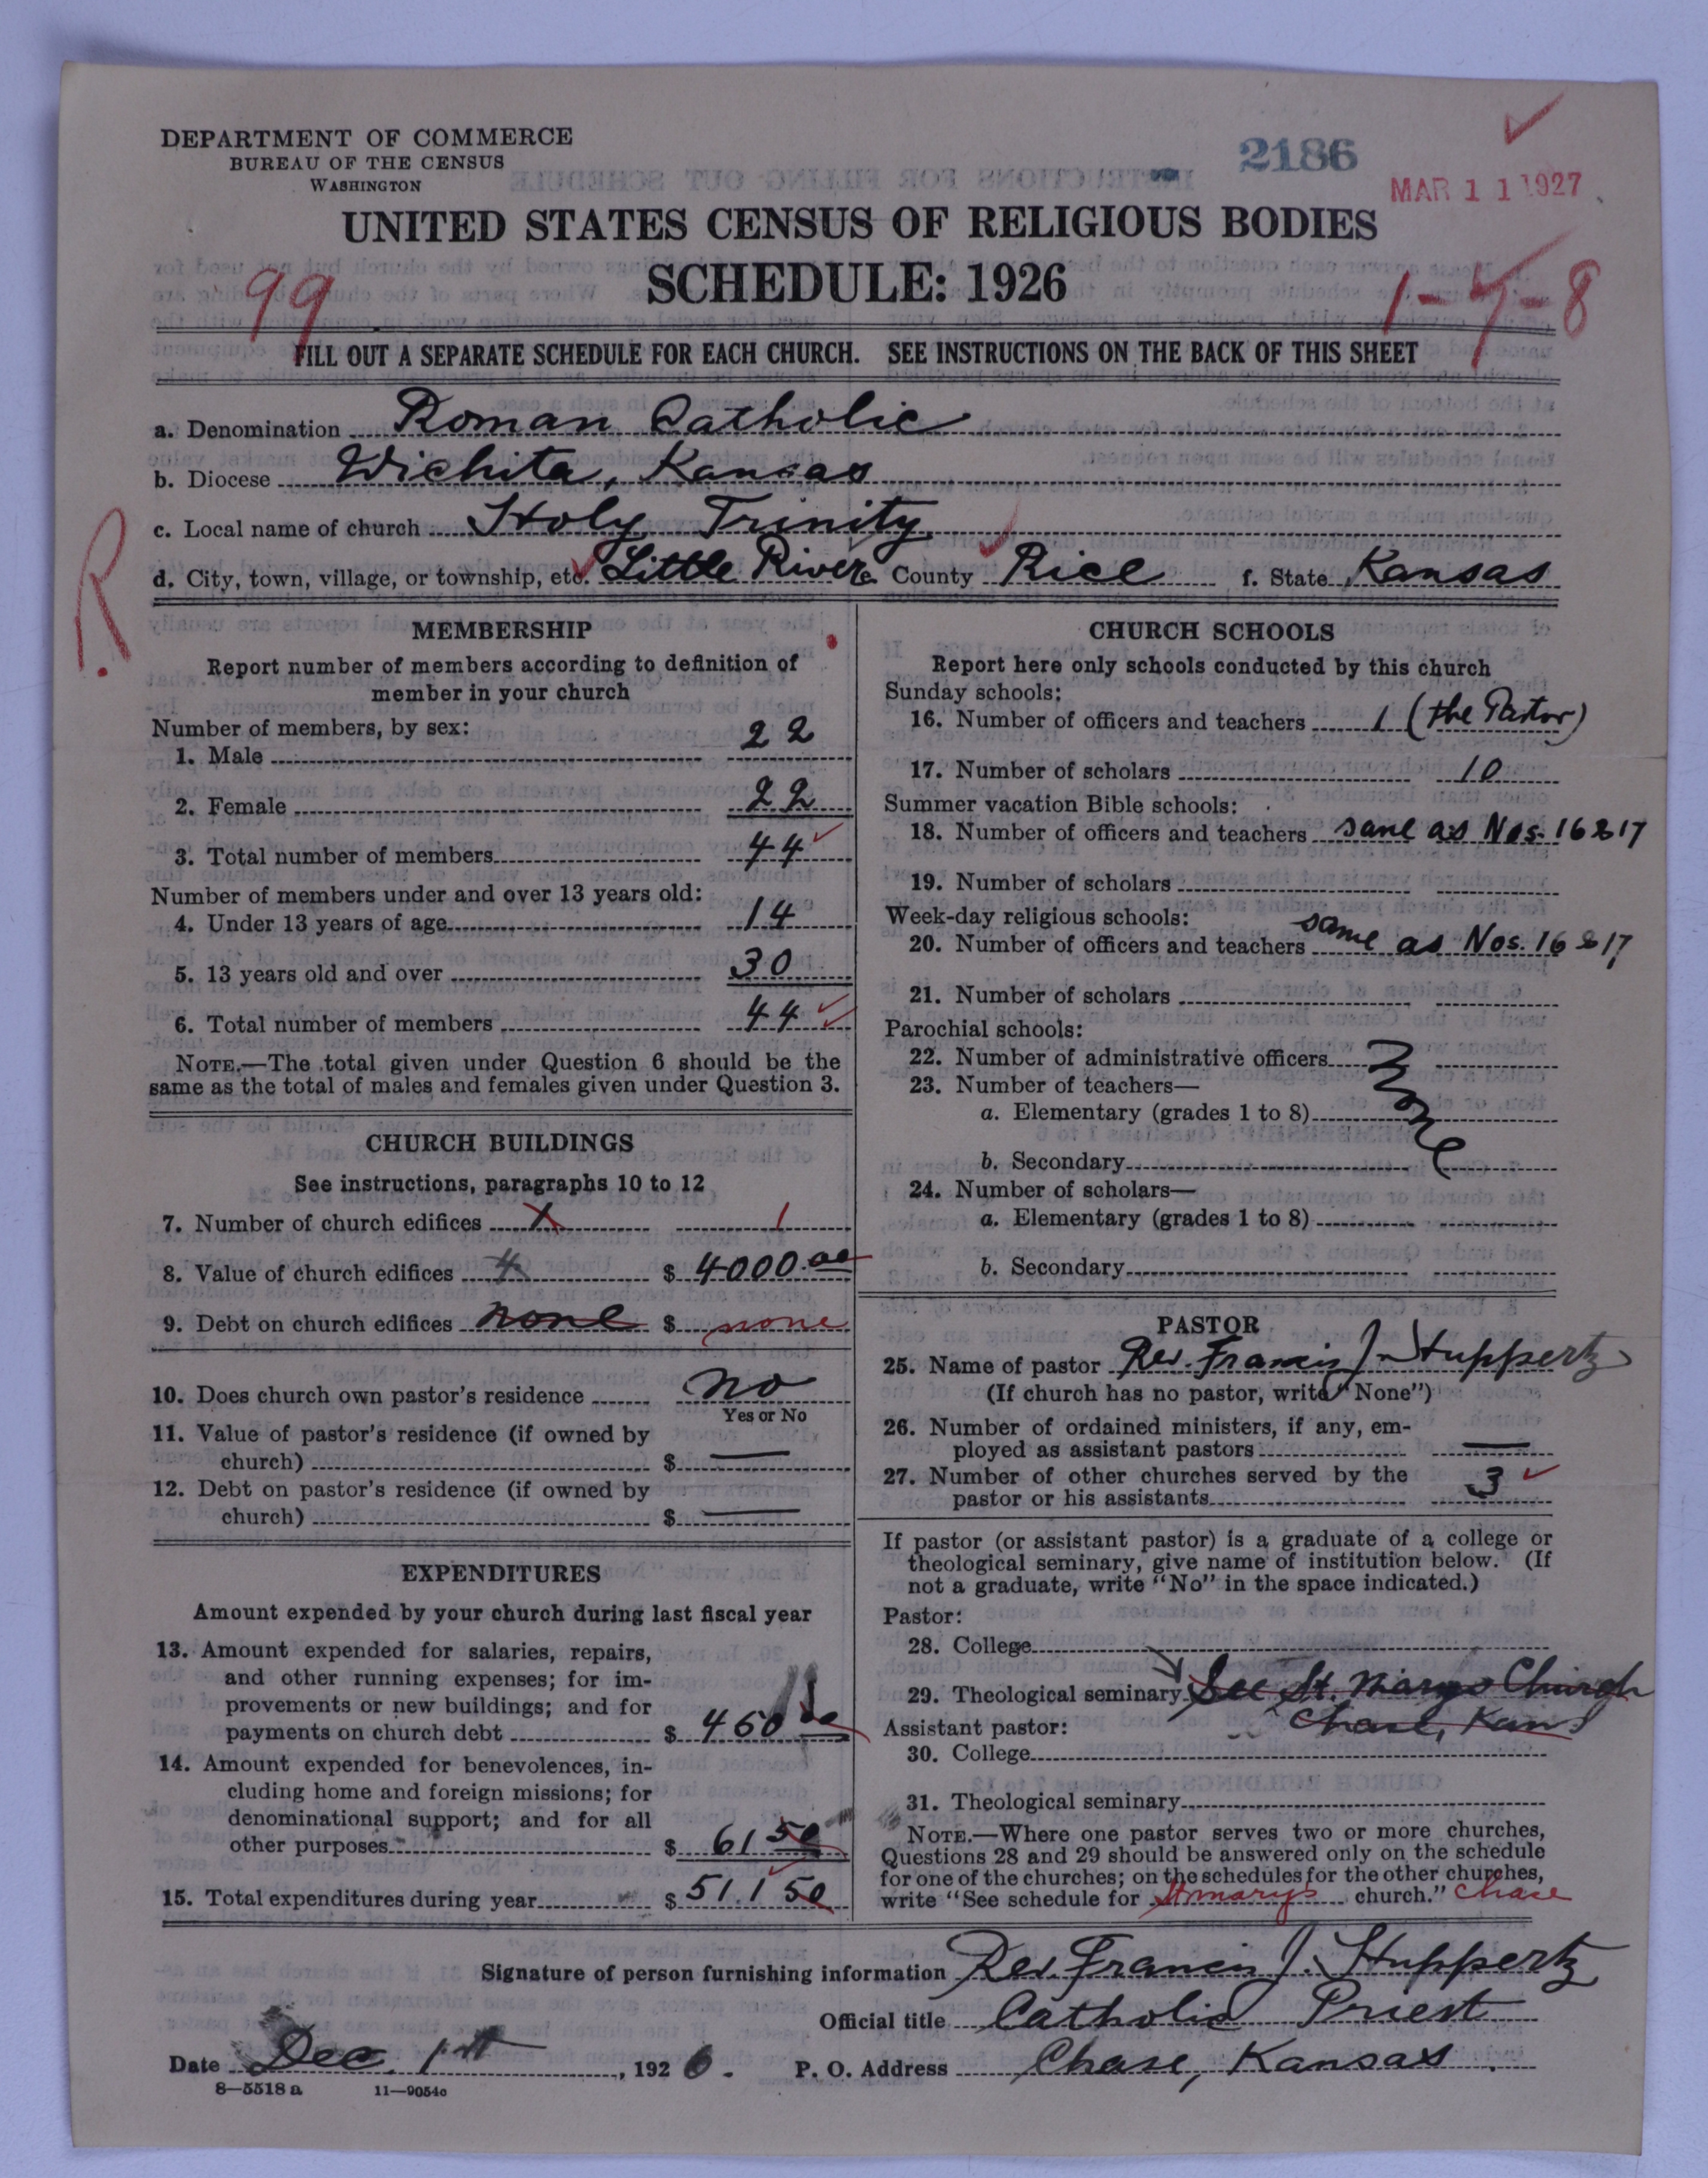 DEPARTMENT OF COMMERCE
BUREAU OF THE CENSUS
WASHINGTON
2186
MAR 11 1927
UNITED STATES CENSUS OF RELIGIOUS BODIES
SCHEDULE: 1926
99
1-4-8
FILL OUT A SEPARATE SCHEDULE FOR EACH CHURCH. SEE INSTRUCTIONS ON THE BACK OF THIS SHEET
a. Denomination Roman Catholic
b. Diocese Wichita, Kansas
c. Local name of church Holy Trinity
d. City, town, village, or township, etc. Little River e. County Rice f. State Kansas
R
MEMBERSHIP
Report number of members according to definition of
member in your church
Number of members, by sex:
1. Male 22
2. Female 22
3. Total number of members 44
Number of members under and over 13 years old:
4. Under 13 years of age 14
5. 13 years old and over 30
6. Total number of members 44
NOTE.—The total given under Question 6 should be the
same as the total of males and females given under Question 3.
CHURCH BUILDINGS
See instructions, paragraphs 10 to 12
7. Number of church edifices 1 1
8. Value of church edifices 4 $ 4000.00
9. Debt on church edifices none $ none
10. Does church own pastor's residence no
Yes or No
11. Value of pastor's residence (if owned by
church) $ —
12. Debt on pastor's residence (if owned by
church) $ —
EXPENDITURES
Amount expended by your church during last fiscal year
13. Amount expended for salaries, repairs,
and other running expenses; for im-
provements or new buildings; and for
payments on church debt $ 450 00
14. Amount expended for benevolences, in-
cluding home and foreign missions; for
denominational support; and for all
other purposes $ 61 50
15. Total expenditures during year $ 511 50
CHURCH SCHOOLS
Report here only schools conducted by this church
Sunday schools:
16. Number of officers and teachers 1 (the Pastor)
17. Number of scholars 10
Summer vacation Bible schools:
18. Number of officers and teachers same as Nos. 16 & 17
19. Number of scholars
Week-day religious schools:
20. Number of officers and teachers same as Nos. 16 & 17
21. Number of scholars
Parochial schools:
22. Number of administrative officers None
23. Number of teachers—
a. Elementary (grades 1 to 8)
b. Secondary
24. Number of scholars—
a. Elementary (grades 1 to 8)
b. Secondary
PASTOR
25. Name of pastor Rev. Francis J. Huppertz
(If church has no pastor, write "None")
26. Number of ordained ministers, if any, em-
ployed as assistant pastors —
27. Number of other churches served by the
pastor or his assistants 3
If pastor (or assistant pastor) is a graduate of a college or
theological seminary, give name of institution below. (If
not a graduate, write "No" in the space indicated.)
Pastor:
28. College
29. Theological seminary See St. Marys Church
Chase, Kans
Assistant pastor:
30. College
31. Theological seminary
NOTE.—Where one pastor serves two or more churches,
Questions 28 and 29 should be answered only on the schedule
for one of the churches; on the schedules for the other churches,
write "See schedule for St marys church." Chase
Signature of person furnishing information Rev. Francis J. Huppertz
Official title Catholic Priest
Date Dec. 1st, 1926. P. O. Address Chase, Kansas.
8—5518 a 11—9054c